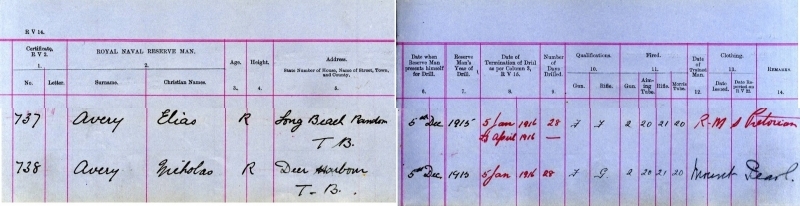 R V 14.
Certificate, R V 2.
ROYAL NAVAL RESERVE MAN.
Age.
Height.
Address.
State Number of House, Name of Street, Town, and County.
1.
2.
3.
4.
5.
No.
Letter.
Surname.
Christian Names.
Date when Reserve Man presents himself for Drill.
Reserve Man's Year of Drill.
Date of Termination of Drill as per Column 8, R V 15.
Number of Days Drilled.
Qualifications.
Fired.
Date of Trained Man.
Clothing.
REMARKS.
6.
7.
8.
9.
10.
11.
12.
13.
14.
Gun.
Rifle.
Gun.
Aiming Tube.
Rifle.
Morris Tube.
Date Issued.
737 Avery Elias R Long Beach Random 5th Dec 1915 5 Jan 1916 28 2 20 21 20 R-M S Pretorian
T B. April 1916 —
738 Avery Nicholas R Deer Harbour 5th Dec 1915 5 Jan 1916 28 2 20 21 20 Mount Pearl.
T-B.